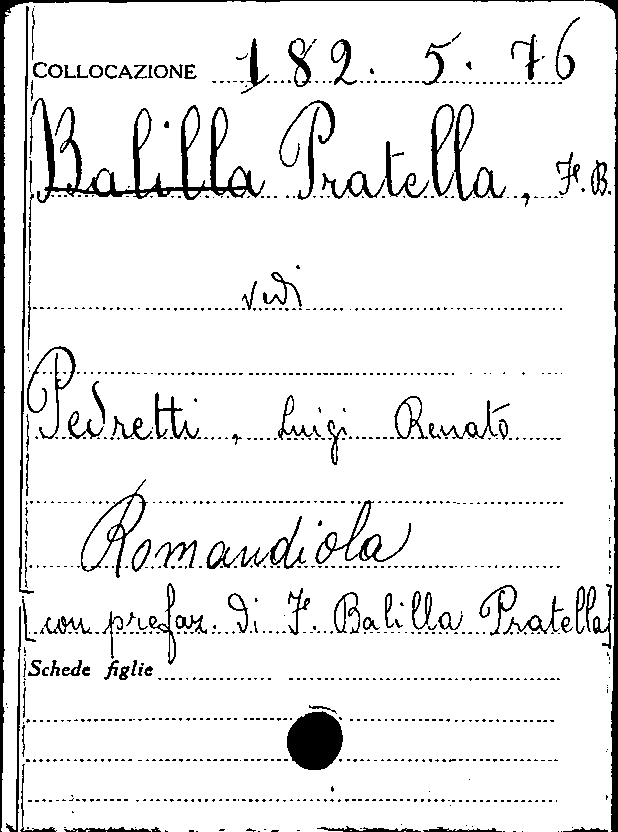 COLLOCAZIONE 182. 5. 76
Balilla Pratella, F. B.
vedi
Pedretti, Luigi Renato
Romandiola
[con prefaz. di F. Balilla Pratella]
Schede figlie